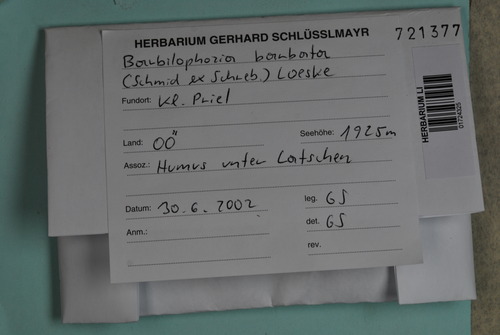 HERBARIUM GERHARD SCHLÜSSLMAYR
721377
Barbilophozia barbata
(Schmid ex Schreb.) Loeske
Fundort: Kl. Priel
Land: OÖ Seehöhe: 1925m
Assoz.: Humus unter Latschen
Datum: 30.6.2002 leg. GS
det. GS
Anm.:
rev.
HERBARIUM LI